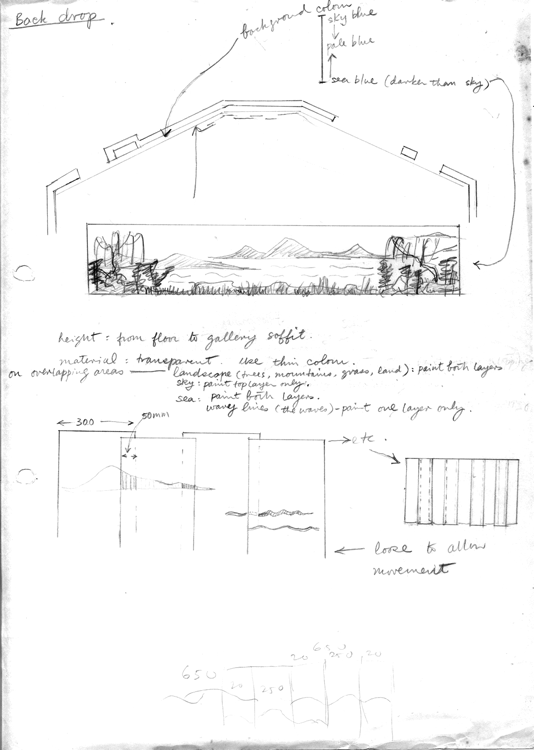 Back drop.
background colour
sky blue
pale blue
sea blue (darker than sky)
height : from floor to gallery soffit.
material : transparent. use thin colour.
on overlapping areas — landscape (trees, mountains, grass, land) : paint both layers
sky : paint top layer only.
sea : paint both layers.
wavey lines (the waves) - paint one layer only.
300
50mm
etc.
loose to allow
movement
650
20
250
20
250
20